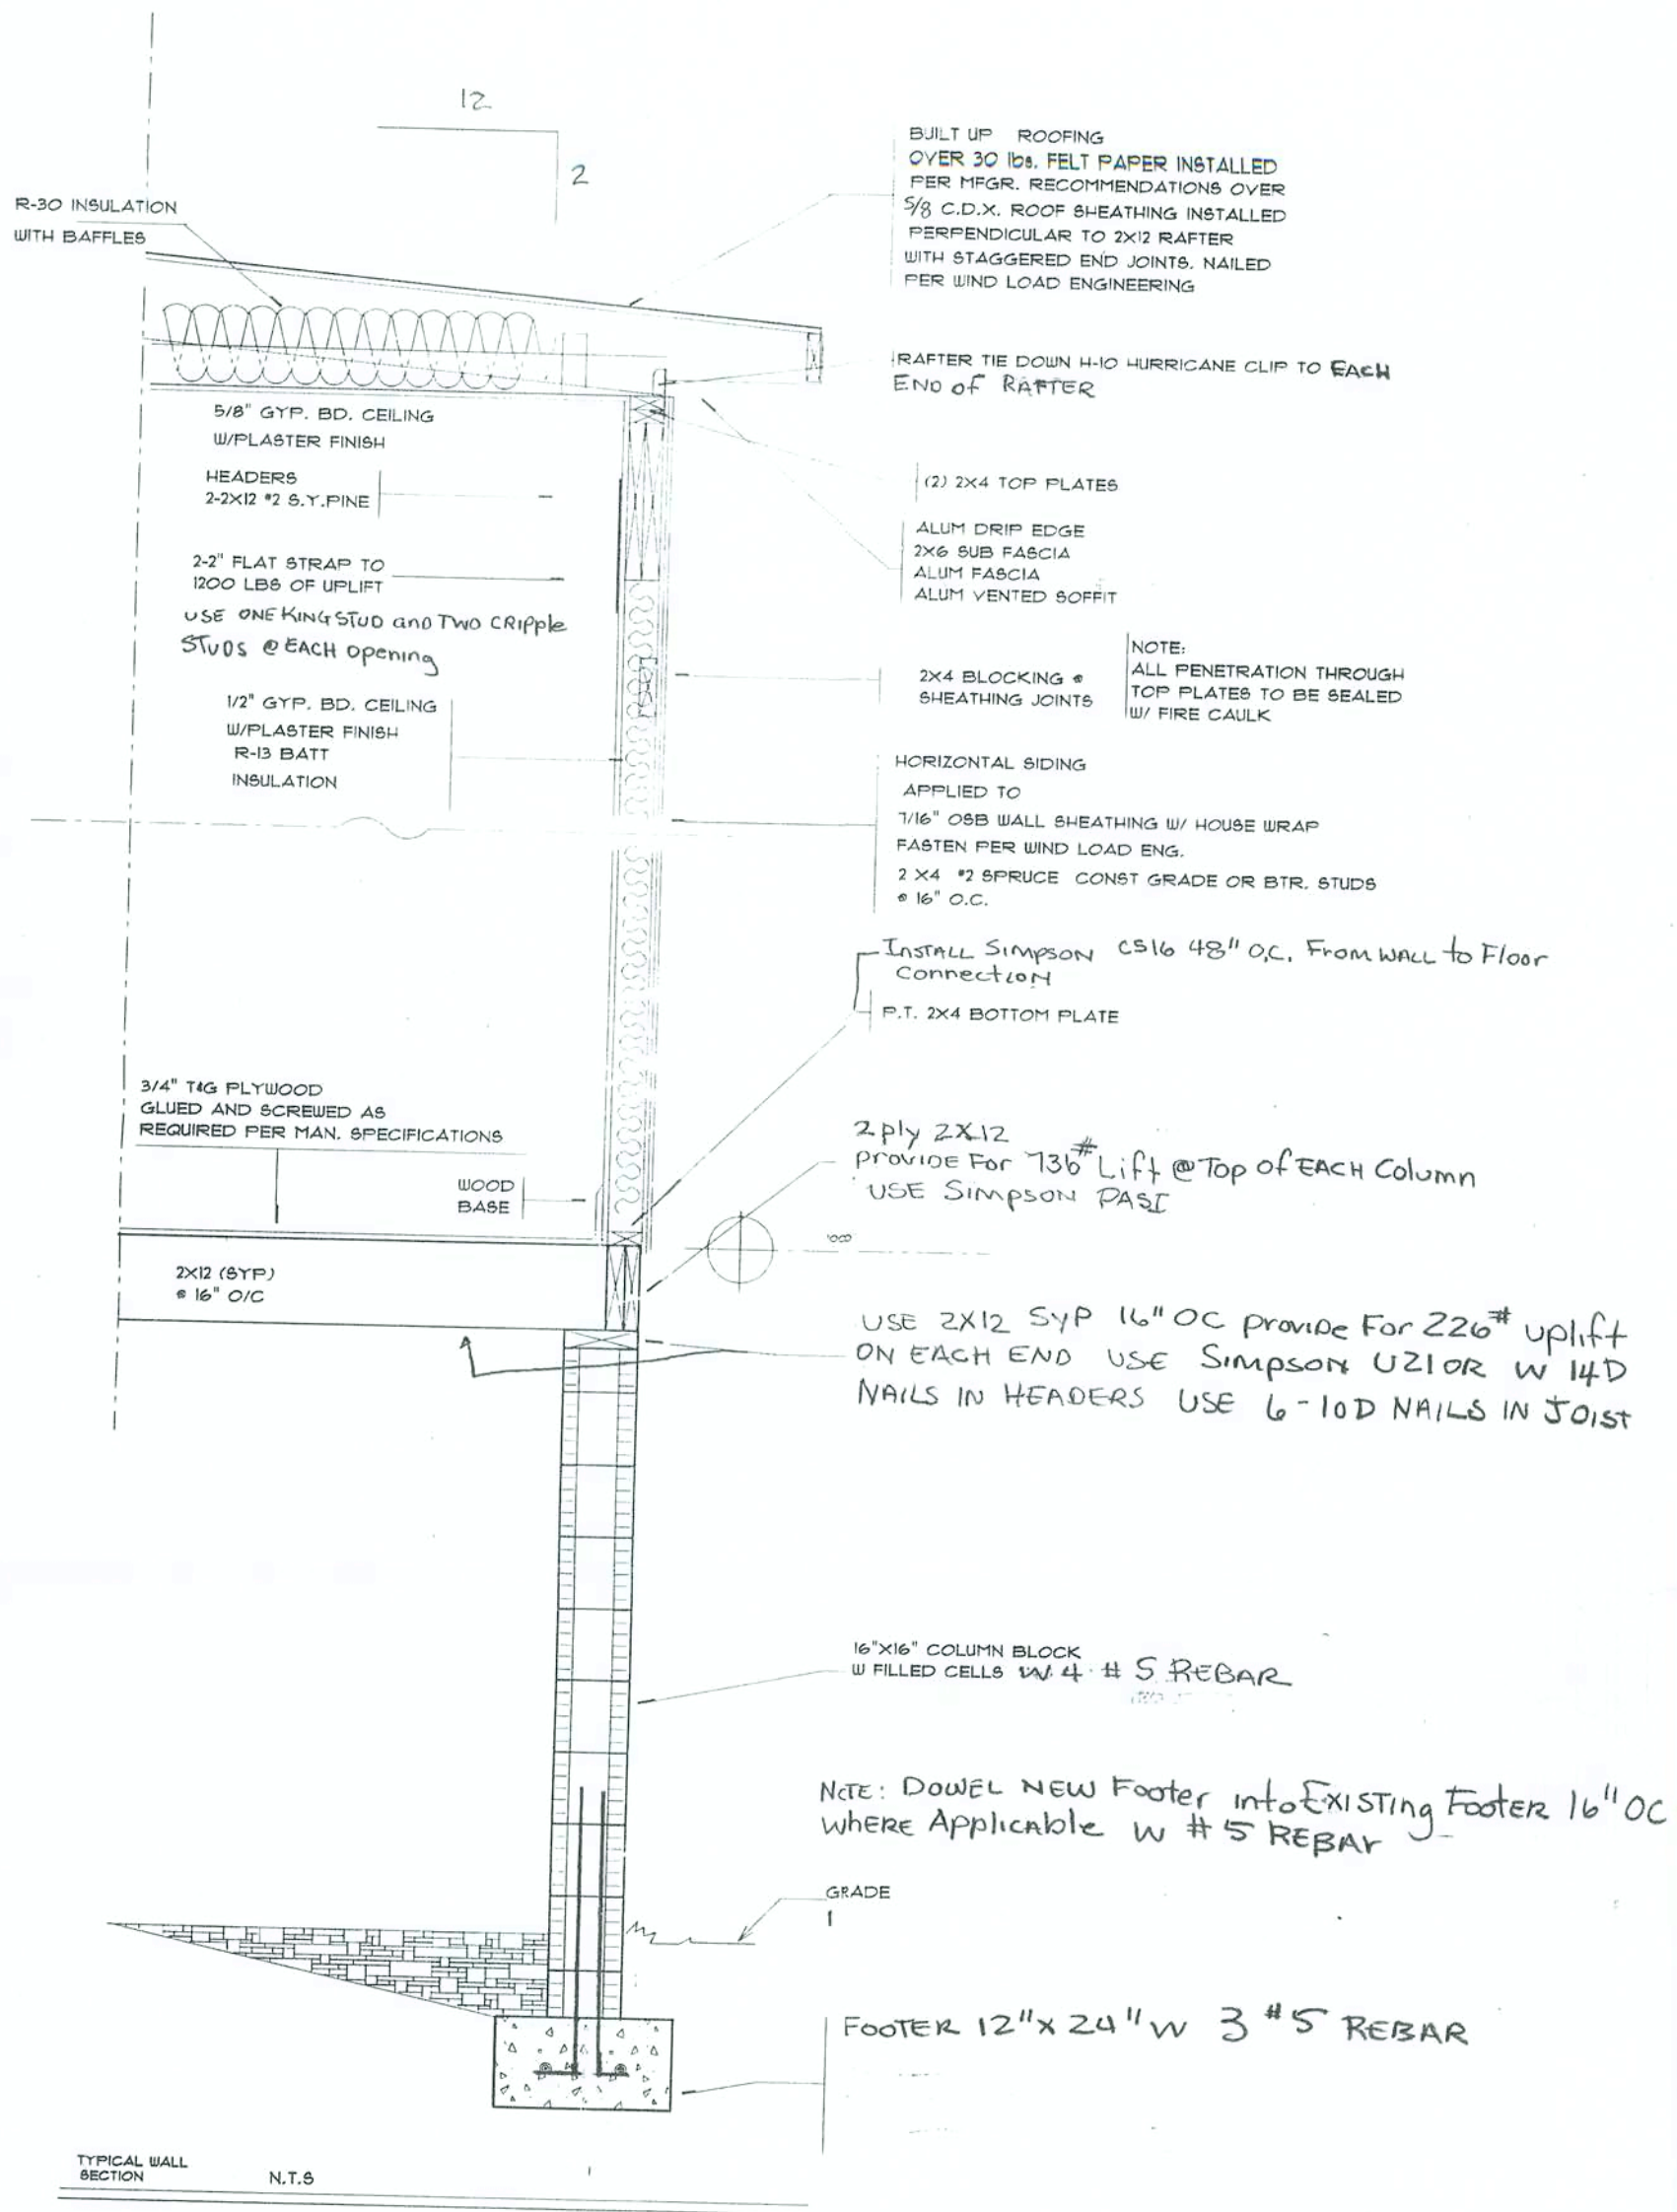 12
2
R-30 INSULATION
WITH BAFFLES
BUILT UP ROOFING
OVER 30 lbs. FELT PAPER INSTALLED
PER MFGR. RECOMMENDATIONS OVER
5/8 C.D.X. ROOF SHEATHING INSTALLED
PERPENDICULAR TO 2X12 RAFTER
WITH STAGGERED END JOINTS. NAILED
PER WIND LOAD ENGINEERING
RAFTER TIE DOWN H-10 HURRICANE CLIP TO EACH
END OF RAFTER
5/8" GYP. BD. CEILING
W/PLASTER FINISH
HEADERS
2-2X12 #2 S.Y.PINE
(2) 2X4 TOP PLATES
ALUM DRIP EDGE
2X6 SUB FASCIA
ALUM FASCIA
ALUM VENTED SOFFIT
2-2" FLAT STRAP TO
1200 LBS OF UPLIFT
USE ONE KING STUD and TWO CRIPple
STUDS @ EACH opening
2X4 BLOCKING @
SHEATHING JOINTS
NOTE:
ALL PENETRATION THROUGH
TOP PLATES TO BE SEALED
W/ FIRE CAULK
1/2" GYP. BD. CEILING
W/PLASTER FINISH
R-13 BATT
INSULATION
HORIZONTAL SIDING
APPLIED TO
7/16" OSB WALL SHEATHING W/ HOUSE WRAP
FASTEN PER WIND LOAD ENG.
2 X4 #2 SPRUCE CONST GRADE OR BTR. STUDS
@ 16" O.C.
INSTALL SIMPSON CS16 48" O.C. FROM WALL to Floor
Connection
P.T. 2X4 BOTTOM PLATE
3/4" T&G PLYWOOD
GLUED AND SCREWED AS
REQUIRED PER MAN. SPECIFICATIONS
WOOD
BASE
2 ply 2X12
PROVIDE For 736# Lift @ Top Of EACH Column
USE SIMPSON PASI
2X12 (SYP)
@ 16" O/C
USE 2X12 SYP 16" OC PROVIDE For 226# uplift
ON EACH END USE SIMPSON U210R W 14D
NAILS IN HEADERS USE 6-10D NAILS IN JOIST
16"X16" COLUMN BLOCK
W FILLED CELLS W. 4 # 5 REBAR
NOTE: DOWEL NEW Footer into EXISTING Footer 16" OC
WHERE Applicable W #5 REBAr
GRADE
FOOTER 12" X 24" W 3 #5 REBAR
TYPICAL WALL
SECTION N.T.S